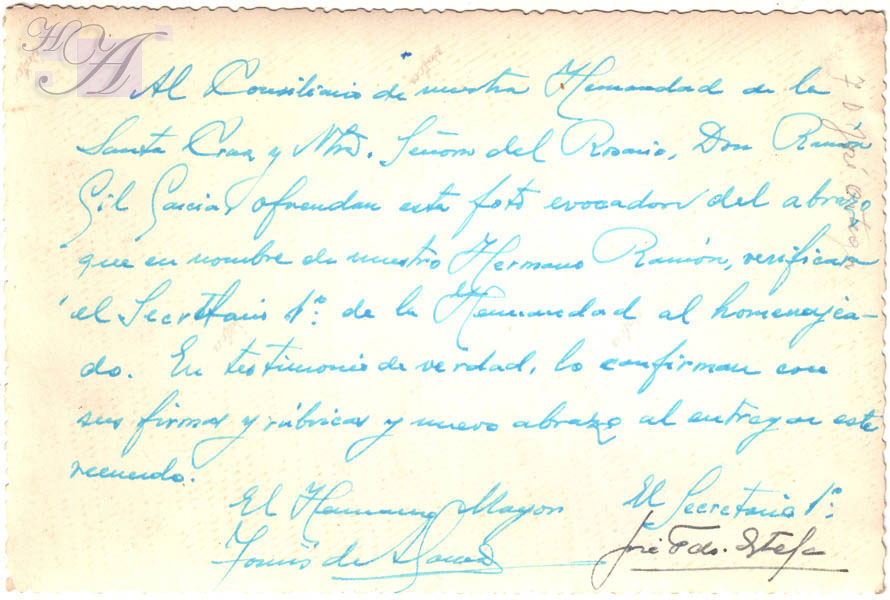 Al Consiliario de nuestra Hermandad de la
Santa Cruz y Ntra. Señora del Rosario, Don Ramón
Gil García, ofrendan esta foto evocadora del abrazo
que en nombre de nuestro Hermano Ramón, verificara
el Secretario 1º de la Hermandad al homenajea-
do. En testimonio de verdad, lo confirman con
sus firmas y rúbricas y nuevo abrazo al entregar este
recuerdo.
El Hermano Mayor El Secretario 1º:
Tomás de José Fdo.